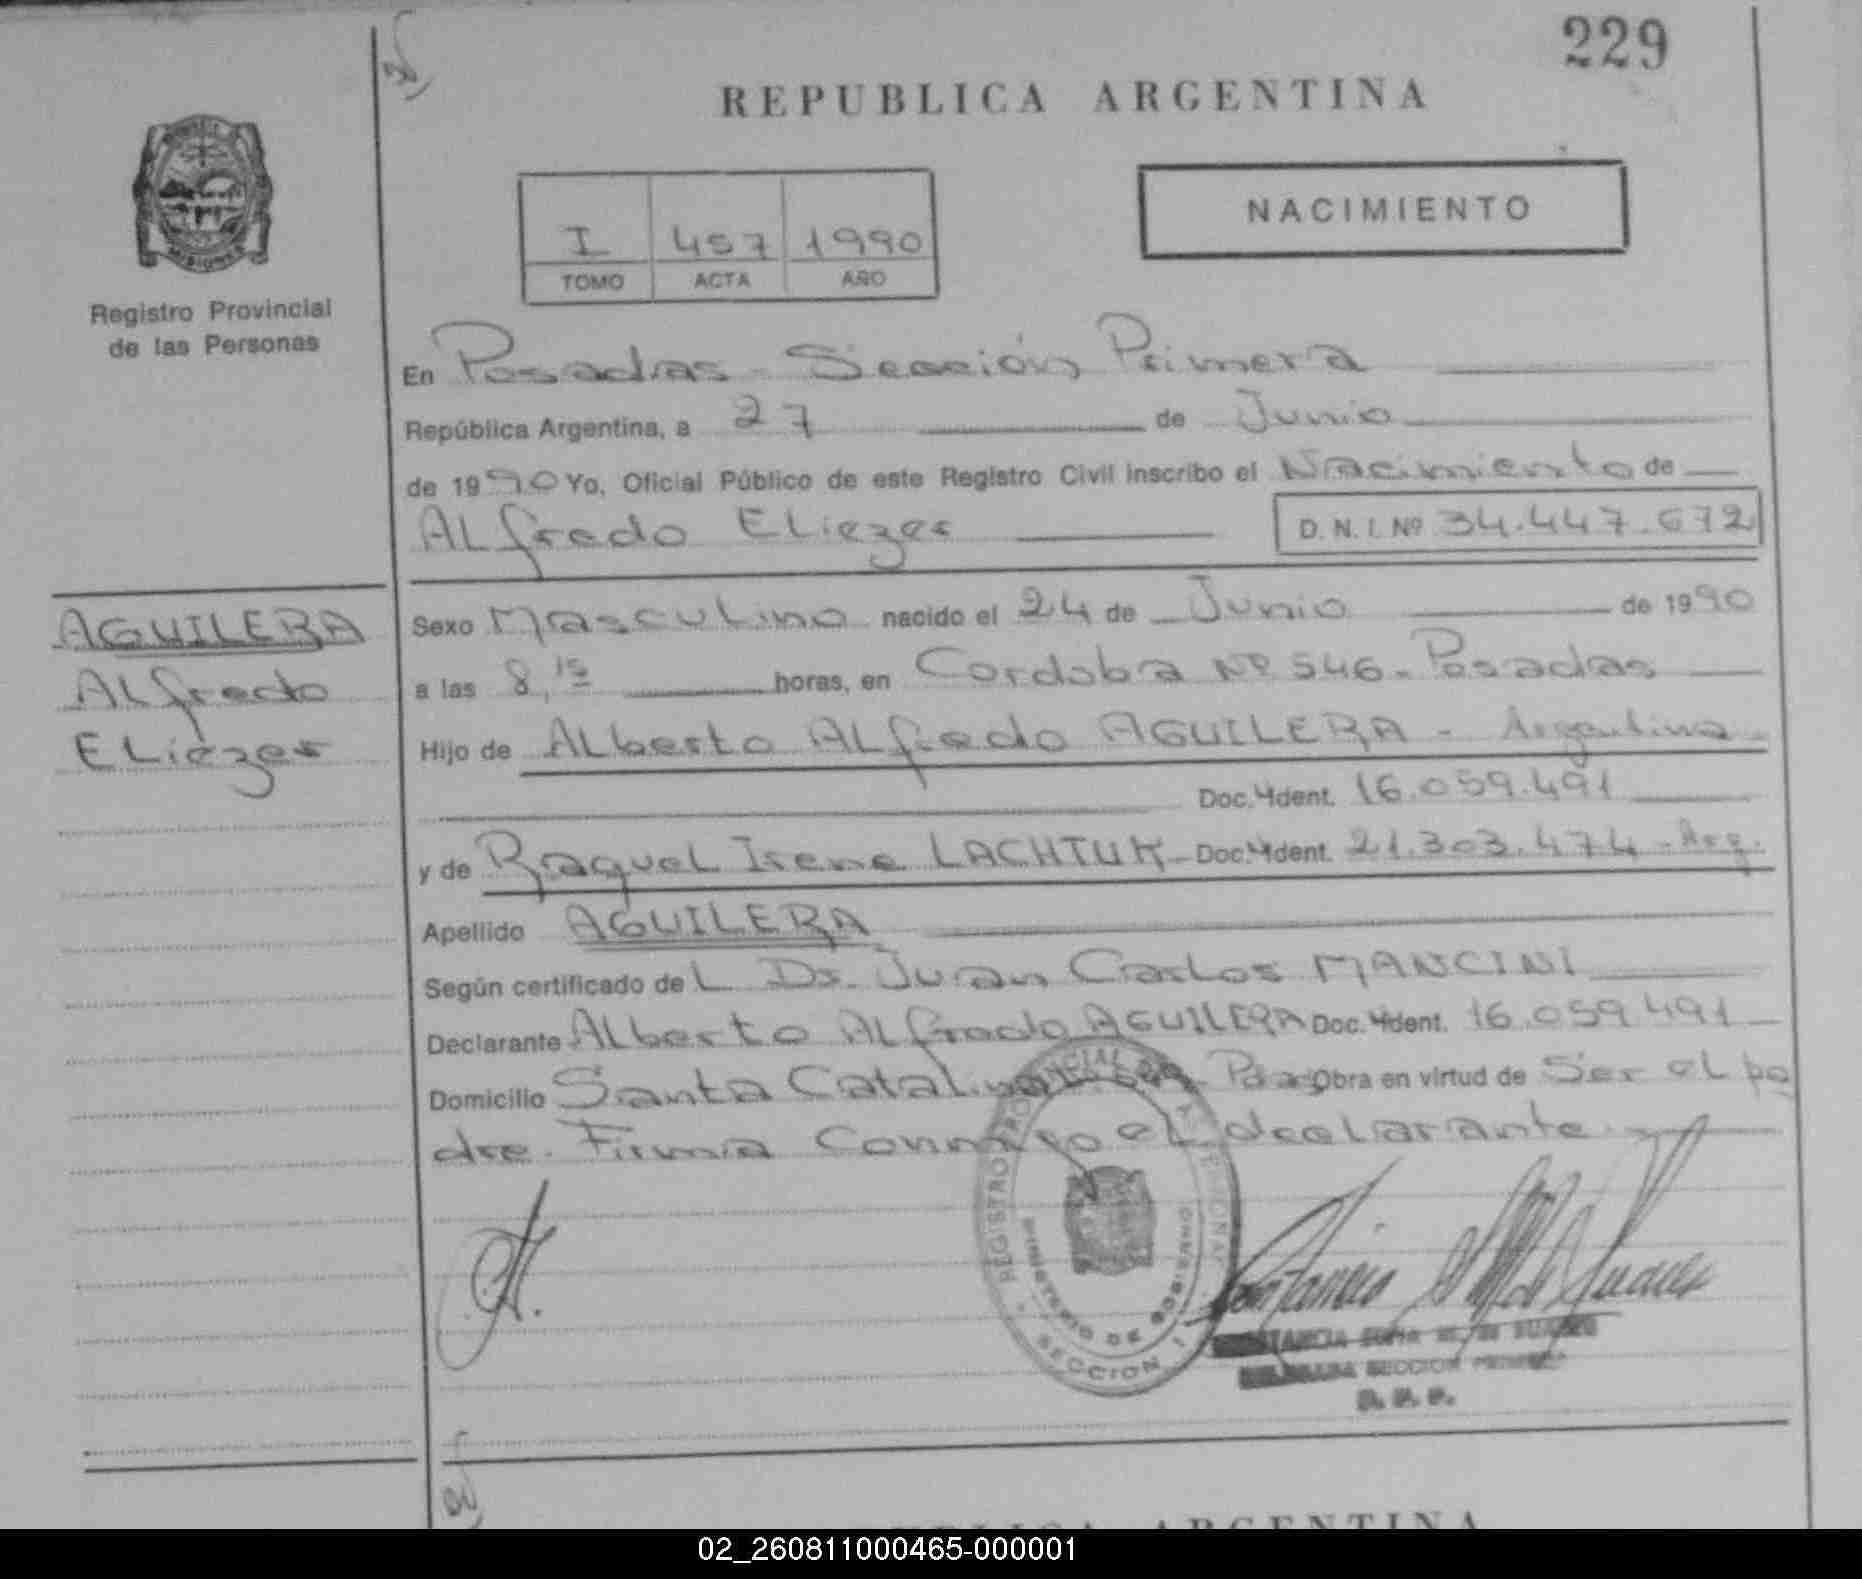 229
REPUBLICA ARGENTINA
NACIMIENTO
I 457 1990
TOMO ACTA AÑO
MISIONES
Registro Provincial
de las Personas
En Posadas - Sección Primera
República Argentina, a 27 de Junio
de 1990 Yo, Oficial Público de este Registro Civil inscribo el Nacimiento de
ALfredo ELiezer D. N. I. Nº 34.447.672
AGUILERA
ALfredo
ELiezer
Sexo MascuLino nacido el 24 de Junio de 1990
a las 8,15 horas, en Cordoba Nº 546 - Posadas
Hijo de ALberto ALfredo AGUILERA - Argentina -
Doc. Ident. 16.059.491
y de RaqueL Irene LACHIUK - Doc. Ident. 21.303.474 - Arg.
Apellido AGUILERA
Según certificado de L Dr. Juan CarLos MANCINI
Declarante ALberto ALfredo AGUILERA Doc. Ident. 16.059.491
Domicilio Santa CataLina Pdas Obra en virtud de Ser eL pa
dre. Firma Conmigo eL decLarante
REGISTRO PROVINCIAL DE LAS PERSONAS
MINISTERIO DE GOBIERNO
SECCION 1
SECCION PRIMERA
R. P. P.
REPUBLICA ARGENTINA
02_260811000465-000001